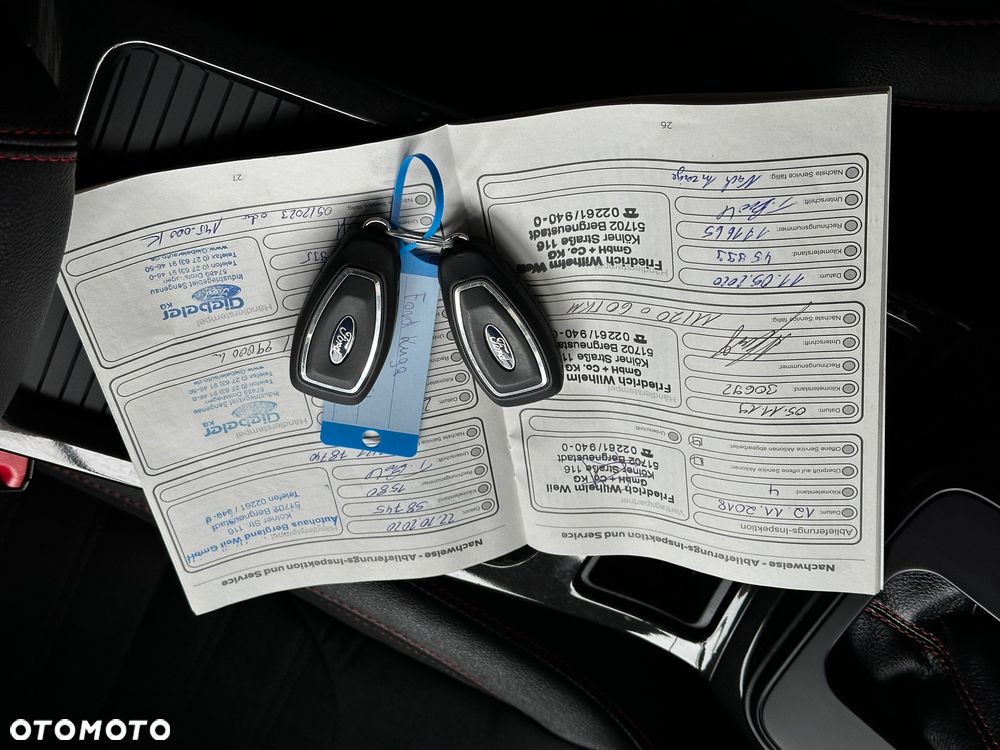 Nachweise - Ablieferungs-Inspektion und Service
Ablieferungs-Inspektion
Datum: 12.11.2018
Kilometerstand: 4
Überprüft auf offene Service Aktionen
Offene Service Aktionen abgearbeitet
Unterschrift:
Vertragspartner
Friedrich Wilhelm Weil
GmbH + Co. KG
Kölner Straße 116
51702 Bergneustadt
☎ 02261/940-0
Datum: 05.11.19
Kilometerstand: 30697
Rechnungsnummer:
Unterschrift:
Nächste Service fällig: 11/20 o 60TKM
Händlerstempel
Friedrich Wilhelm
GmbH + Co. KG
Kölner Straße 116
51702 Bergneustadt
☎ 02261/940-0
Datum: 11.05.2020
Kilometerstand: 45933
Rechnungsnummer: 191665
Unterschrift:
Nächste Service fällig: Nach Anzeige
Händlerstempel
Friedrich Wilhelm Weil
GmbH + Co. KG
Kölner Straße 116
51702 Bergneustadt
☎ 02261/940-0
26
Nachweise - Ablieferungs-Inspektion und Service
Datum: 22.10.2020
Kilometerstand: 58745
Rechnungsnummer: 1580
Unterschrift:
Nächste Service 78740
Händlerstempel
Autohaus Bergland Weil GmbH
Kölner Str. 116
51702 Bergneustadt
Telefon 02261 / 940-0
Datum:
Kilometerstand
99000 k
Händlerstempel
Giebeler
KG
Industriegebiet Sengenau
57489 Drolshagen
Telefon (0 27 63) 91 46-0
Telefax (0 27 63) 91 46-50
www.Giebelerauto.de
Händlerstempel
Giebeler
KG
Industriegebiet Sengenau
57489 Drolshagen
Telefon (0 27 63) 91 46-0
Telefax (0 27 63) 91 46-50
www.Giebelerauto.de
Nächste Service fällig: 05/2023 oder 145.000 K
27
Ford Kuga
Ford
Ford
OTOMOTO